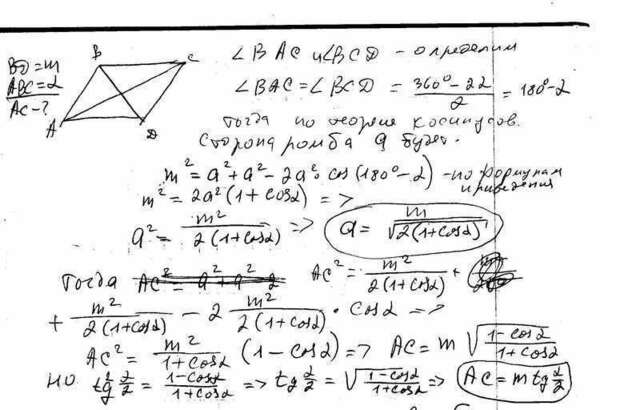 B C
A D
BD = m
ABC = α
AC - ?
∠BAC и ∠BCD - определим
∠BAC = ∠BCD = (360° - 2α)/2 = 180° - α
тогда по теореме косинусов.
Сторона ромба a будет.
m² = a² + a² - 2a² · cos(180° - α) - по формулам приведения
m² = 2a²(1 + cosα) =>
a² = m²/(2(1+cosα)) => a = m/√(2(1+cosα))
Тогда AC² = a² + a² - 2 AC² = m²/(2(1+cosα)) +
+ m²/(2(1+cosα)) - 2 m²/(2(1+cosα)) · cosα =>
AC² = m²/(1+cosα) (1 - cosα) => AC = m √((1-cosα)/(1+cosα))
но tg² α/2 = (1-cosα)/(1+cosα) => tg α/2 = √((1-cosα)/(1+cosα)) => AC = m tg α/2